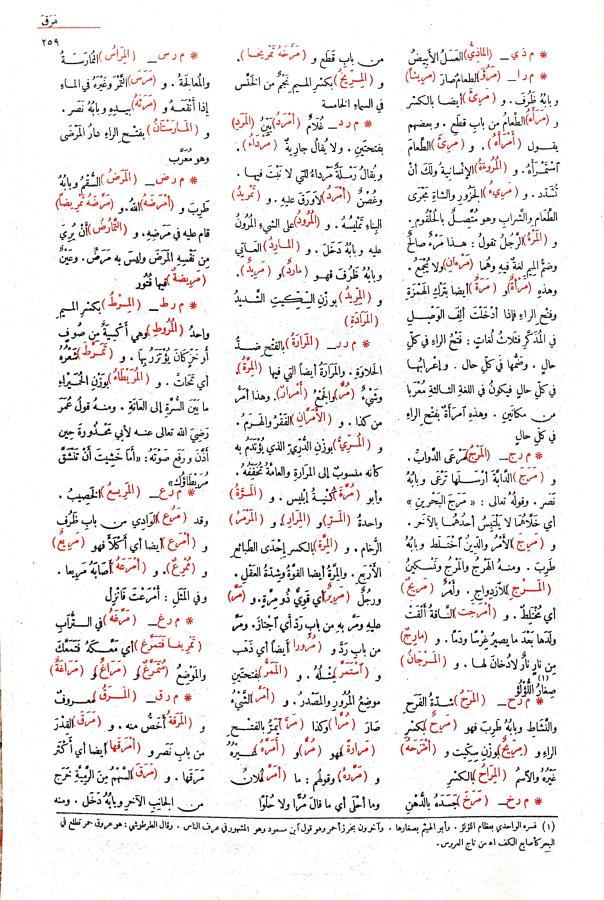 مَرَقَ
٢٥٩
* م ذ ي ـ (المَاذِيُّ) العَسَلُ الأَبيضُ
* م ر ا ـ (مَرُؤَ) الطعامُ صارَ (مَرِيئاً)
وبابُه ظَرُفَ . و (مَرِئَ) أيضا بالكسْرِ
و (مَرَأَهُ) الطعامُ من باب قَطَع . وبعضهم
يقول (أَمْرَأَهُ) . و (مَرِئَ) الطعَامَ
اسْتَمْرَأَهُ . و (المُرُوءَةُ) الإنسانية ولك أنْ
تُشَدّد . و (مَرِيءُ) الجَزُورِ والشاةِ مَجْرَى
الطَّعام والشَّراب وهو مُتَّصِلٌ بالحُلْقومِ .
و (المَرْءُ) الرَّجُلُ تقولُ : هـذا مَرْءٌ صالحٌ
وضمُّ الميم لغةٌ فيه وهُما (مَرْءَانِ) ولا يُجمَعُ .
وهذهِ (مَرْأَةٌ) و (مَرَةٌ) أيضا بتركِ الهَمْزةِ
وفتحِ الراءِ فإذا أدْخَلْتَ ألِفَ الوَصْل
في المُذَكَّرِ فثلاثُ لُغاتٍ : فَتْحُ الراءِ في كلِّ
حالٍ . وضمُّها في كلِّ حالٍ . و إعْرابُها
في كلّ حالٍ فيكونُ في اللغةِ الثالثةِ مُعْرَبا
من مكانَينِ . وهذهِ امرَأةٌ بفتْح الراءِ
في كلّ حالٍ
* م ر ج ـ (المَرْجُ) مَرْعَى الدَّوابِّ .
و (مَرَجَ) الدَّابَّةَ أَرْسَلَها تَرْعَى وبابُهُ
نَصَر . وقولُهُ تعالى : «مَرَجَ البَحْرَينِ»
أي خَلَّاهُما لا يَلْتَبِسُ أحدُهُما بالآخَرِ .
و (مَرِجَ) الأَمْرُ والدِّينُ اخْتَلَط وبابُهُ
طَرِبَ . ومنهُ الهَرْجُ والمَرْجُ وتسكينُ
(المَرْجِ) للازْدِواجِ . وأَمْرٌ (مَرِيجٌ)
أي مُخْتَلِطٌ . و (أَمْرَجَتِ) النَّاقةُ أَلْقَتْ
ولدَها بَعْدَ ما يصيرُ غِرْسًا ودَمًا . و (مارِجٌ)
من نارٍ نارٌ لا دُخانَ لها . و (المَرْجانُ)
صِغارُ اللُّؤْلُؤِ (١)
* م ر ح ـ (المَرَحُ) شِدَّةُ الفَرَحِ
والنَّشاطِ وبابُهُ طَرِبَ فهو (مَرِحٌ) بكسْرِ
الراءِ و (مِرِّيحٌ) بوزنِ سِكِّيتٍ و (أَمْرَحَهُ)
غَيْرُهُ والاسْمُ (المِرَاحُ) بالكَسْرِ
* م ر خ ـ (مَرَخَ) جَسَدَهُ بالدُّهْنِ
من باب قَطَع و (مَرَّخَهُ تَمْرِيخا) .
و (المِرِّيخُ) بكسْرِ الميمِ نَجْمٌ من الخُنَّسِ
في السماءِ الخامسة
* م ر د ـ غُلامٌ (أَمْرَدُ) بَيِّنُ (المَرَدِ)
بفتحتينِ . ولا يُقالُ جاريةٌ (مَرْداءُ) .
ويقالُ رَمْلَةٌ مَرْداءُ للتي لا نَبْتَ فيها .
وغُصْنٌ (أَمْرَدُ) لا وَرَقَ عليهِ . و (تَمْرِيدُ)
البناءِ تَمْلِيسُهُ . و (المُرُودُ) على الشيءِ المُرُونُ
عليه وبابُهُ دَخَلَ . و (المارِدُ) العَاتي
وبابُهُ ظَرُفَ فهو (مارِدٌ) و (مَرِيدٌ) .
و (المِرِّيدُ) بوزنِ السِّكِّيتِ الشَّديدُ
(المَرَادَةِ)
* م ر ر ـ (المَرَارَةُ) بالفتحِ ضِدُّ
الحَلاوَةِ . والمَرَارَةُ أيضًا التي فيها (المِرَّةُ) .
وشيءٌ (مُرٌّ) والجَمْعُ (أَمْرارٌ) . وهذا أمَرُّ
من كذا . و (الأَمَرَّانِ) الفَقْرُ والهَرَمُ .
و (المُرِّيُّ) بوزنِ الدُّرِّيِّ الذي يُؤْتَدَمُ به
كأنه منسوبٌ إلى المَرَارَةِ والعامَّةُ تُخَفِّفُهُ .
وأبو (مُرَّةَ) كُنْيَةُ إبليسَ . و (المَرَّةُ)
واحدةُ (المَرِّ) و (المِرَارِ) . و (المَرْمَرُ)
الرُّخام . و (المِرَّةُ) بالكسرِ إحْدَى الطبائعِ
الأَرْبَعِ . والمِرَّةُ أيضا القُوَّةُ وشِدَّةُ العَقْلِ .
ورجُلٌ (مَرِيرٌ) أي قَوِيٌّ ذُو مِرَّةٍ . و (مَرَّ)
عليهِ ومَرَّ بهِ من بابِ رَدَّ أي اجْتازَ . ومَرَّ
من بابِ رَدَّ و (مُرُورا) أيضاً أي ذَهَبَ
و (اسْتَمَرَّ) مِثْلُهُ . و (المَمَرُّ) بفتحتين
موضِعُ المُرُورِ والمصْدَرُ . و (أَمَرَّ) الشَّيْءُ
صارَ (مُرًّا) وكذا (مَرَّ) يَمَرُّ بالفتْـحِ
(مَرارةً) فهو (مُرٌّ) و (أَمَرَّهُ) غَيْرُهُ
و (مَرَّرَهُ) وقولُهم : ما (أَمَرَّ) فُلانٌ
وما أَحْلَى أي ما قالَ مُرًّا ولا حُلْوًا
* م ر س ـ (المِرَاسُ) المُمارَسةُ
والمُعالجَةُ . و (مَرَسَ) التَّمْرَ وغَيْرَهُ في الماءِ
إذا أنْقَعَهُ و (مَرَثَهُ) بيدِهِ وبابُهُ نَصَر .
و (المارَسْتانُ) بفتْحِ الراءِ دارُ المَرْضَى
وهو مُعرَّب
* م ر ض ـ (المَرَضُ) السُّقْمُ وبابُهُ
طَرِبَ و (أَمْرَضَهُ) اللهُ . و (مَرَّضَهُ تَمْرِيضاً)
قام عليهِ في مَرَضِهِ . و (التَّمارُضُ) أنْ يُرِيَ
من نَفْسِهِ المَرَضَ وليْسَ به مَرَضٌ . وعَيْنٌ
(مَرِيضةٌ) فيها فُتُور
* م ر ط ـ (المِرْطُ) بكسْرِ الميمِ
واحدُ (المُرُوطِ) وهي أكْسِيَةٌ من صُوفٍ
أو خَزٍّ كانَ يُؤْتَزَرُ بها . و (تَمَرَّطَ) شَعْرُهُ
أي تَحَاتَّ . و (المُرَيْطاءُ) بوزنِ الحُمَيراءِ
ما بَيْنَ السُّرَّةِ إلى العانَةِ . ومنهُ قولُ عُمَرَ
رَضِيَ اللهُ تعالى عنـه لأبي مَحْذُورةَ حينَ
أذَّنَ ورفَعَ صَوْتَهُ : «أمَا خَشِيتَ أنْ تَنْشَقَّ
مُرَيْطاؤُكَ»
* م ر ع ـ (المَرِيعُ) الخَصِيبُ .
وقد (مَرُعَ) الوَادي من باب ظَرُفَ
و (أَمْرَعَ) أيضا أي أَكْلَأَ فهو (مَرِيعٌ)
و (مُمْرِعٌ) . و (أَمْرَعَهُ) أصابَهُ مَرِيعا .
وفي المَثَل : أَمْرَعْتَ فَانْزِلْ
* م ر غ ـ (مَرَّغَهُ) في التُّرابِ
(تَمْرِيغا فَتَمَرَّغَ) أي مَعَّكَهُ فَتَمَعَّكَ
والمَوْضِعُ (مُتَمَرَّغٌ) و (مَرَاغٌ) و (مَرَاغَةٌ)
* م ر ق ـ (المَرَقُ) معـروفٌ
و (المَرَقَةُ) أخَصُّ منه . و (مَرَقَ) القِدْرَ
من باب نَصَر و (أَمْرَقَها) أيضا أي أَكْثَرَ
مَرَقَها . و (مَرَقَ) السَّهْمُ من الرَّمِيَّةِ خَرَجَ
من الجانِبِ الآخَرِ وبابُهُ دَخَلَ . ومنه
(١) فسره الواحدي بعظام اللؤلؤ . وأبو الهيثم بصغارها . وآخرون بخرز أحمر وهو قول ابن مسعود وهو المشهور في عرف الناس . وقال الطرطوشي : هو عروق حمر تطلع في
البحر كأصابع الكف اه من تاج العروس .